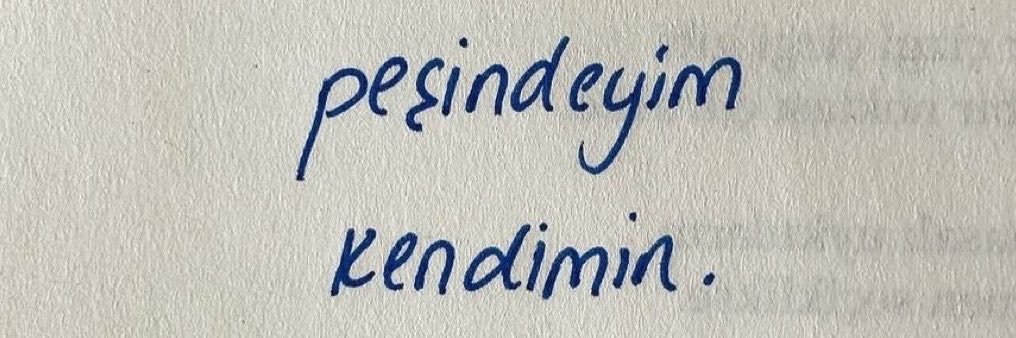 peşindeyim
kendimin.